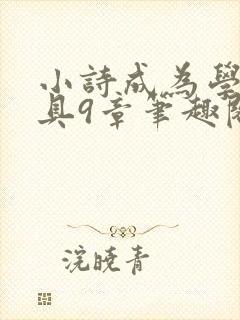 小詩成為學
具9章筆趣閣
浣曉青